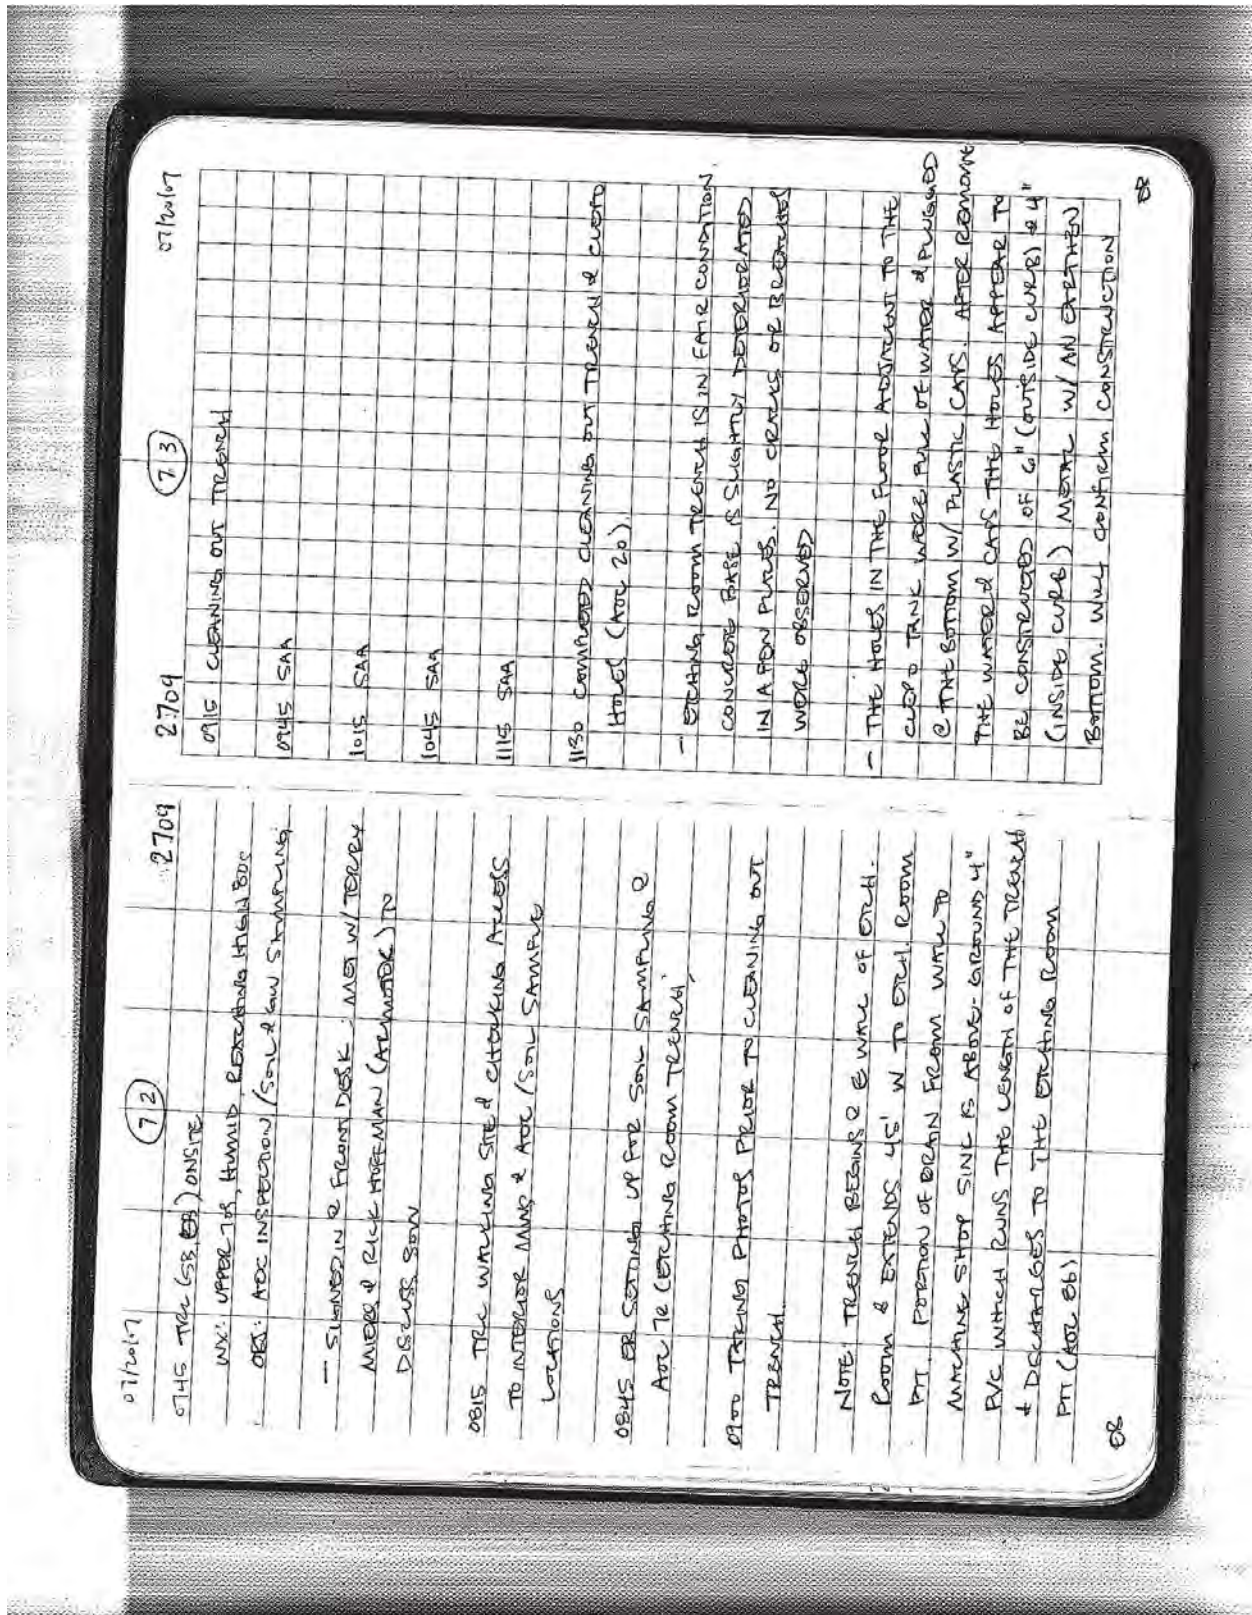 07/20/07 72 2709
0745 TRC (SB, EB) ONSITE
WX: UPPER 70s, HUMID, REACHING HIGH 80s
OBJ: AOC INSPECTION / SOIL & GW SAMPLING
- SIGNED IN @ FRONT DESK; MET W/ TERRY
& RICK HOFFMAN TO
DISCUSS SOW
0815 TRC WALKING SITE & CHECKING ACCESS
TO INTERIOR MWs & AOC / SOIL SAMPLE
LOCATIONS
0845 EB SETTING UP FOR SOIL SAMPLING @
AOC 7R (ETCHING ROOM TRENCH)
0900 TAKING PHOTOS PRIOR TO CLEANING OUT
TRENCH.
NOTE: TRENCH BEGINS @ E WALL OF ETCH.
ROOM & EXTENDS 45' W TO ETCH. ROOM
PIT. PORTION OF DRAIN FROM WALL TO
MACHINE SHOP SINK IS ABOVE-GROUND 4"
PVC WHICH RUNS THE LENGTH OF THE TRENCH
& DISCHARGES TO THE ETCHING ROOM
PIT (AOC 8b)
EB
2709 73 07/20/07
0915 CLEANING OUT TRENCH
0945 SAA
1015 SAA
1045 SAA
1115 SAA
1130 COMPLETED CLEANING OUT TRENCH &
HOLES (AOC 20).
- ETCHING ROOM TRENCH IS IN FAIR CONDITION
CONCRETE BASE IS SLIGHTLY DETERIORATED
IN A FEW PLACES. NO CRACKS OR BREACHES
WERE OBSERVED
- THE HOLES IN THE FLOOR ADJACENT TO THE
TANK WERE FULL OF WATER & PLUGGED
@ THE BOTTOM W/ PLASTIC CAPS. AFTER REMOVE
THE WATER & CAPS THE HOLES APPEAR TO
BE CONSTRUCTED OF 6" (OUTSIDE CURB) & 4"
(INSIDE CURB) METAL W/ AN EARTHEN
BOTTOM. WILL CONFIRM CONSTRUCTION
EB